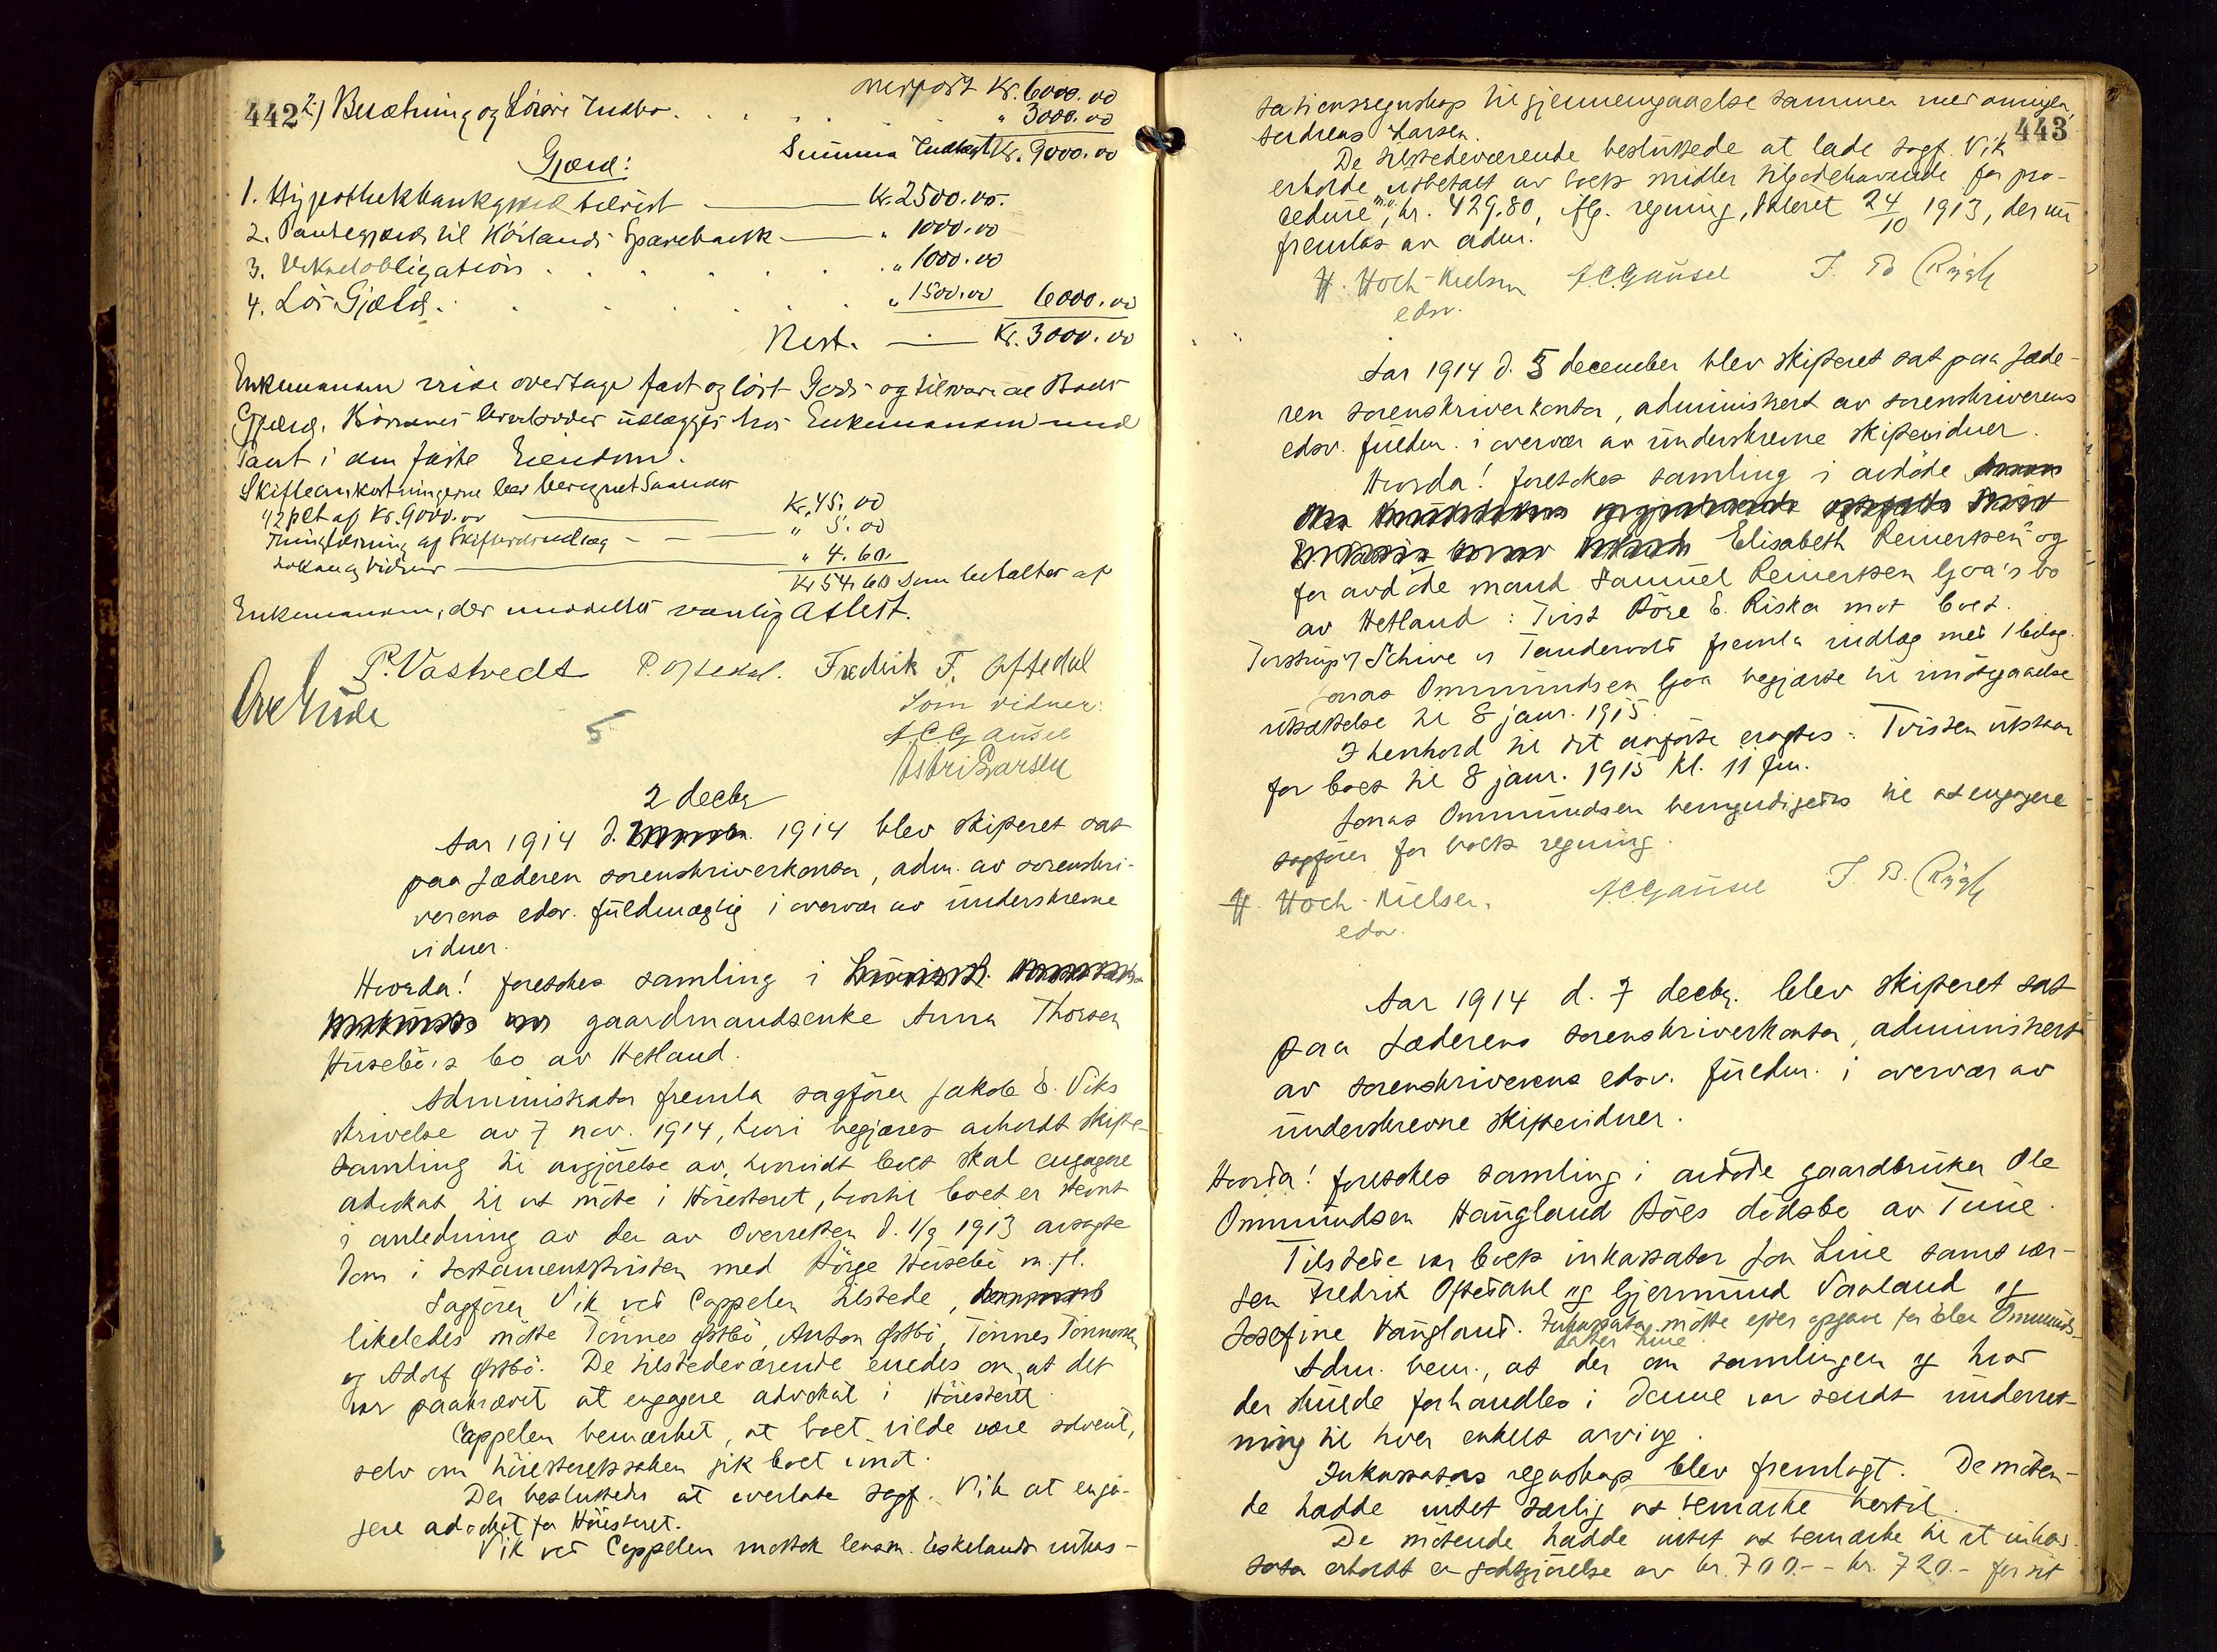 442
2) Besætning og Løsøre Indbo . . . . . " 3000.00
Overført Kr. 6000.00
Summa Indtægt Kr. 9000.00
Gjæld:
1. Hypothekbankgjæld tilrest — Kr. 2500.00.
2. Pantegjæld til Sparebank — " 1000.00
3. Vexelobligation . . . . . . " 1000.00
4. Løs Gjæld . . . . . " 1500.00 6000.00
Rest. — Kr. 3000.00
Enkemanden vilde overtage fast og løst Gods og tilsvare al Boets
Gjæld. Børnenes Arvelodder udlægges hos Enkemanden med
Pant i den faste Eiendom.
Skifteomkostningerne blev beregnet Saaledes
½ pct af Kr. 9000.00 — Kr. 45.00
Thinglæsning af Skifteudlæg — " 5.00
Vidner — " 4.60
Kr 54.60 som betaltes af
Enkemanden, der meddeltes vanlig Attest.
P. Vastvedt P. Oftedal. Fredrik F. Oftedal
Som vidner:
A C Gausel
Astri Larsen
2 decbr
Aar 1914 d. 1914 blev skifteret sat
paa Jæderen sorenskriverkontor, adm. av sorenskri-
verens edsv. fuldmægtig i overvær av underskrevne
vidner.
Hvorda! foretokes samling i
gaardmandsenke Anna Thorsen
Husebø's bo av Hetland.
Administrator fremla sagfører Jakob E. Viks
skrivelse av 7 nov. 1914, hvori begjæres avholdt skifte-
samling til avgjørelse av, hvorvidt boet skal engagere
advokat til at møte i Høiesteret, hvortil boet er stevnt
i anledning av den av Overretten d. 1/9 1913 avsagte
dom i testamentstvisten med Børge Husebø m. fl.
Sagfører Vik ved Cappelen tilstede,
likeledes møtte Tønnes Østbø, Anton Østbø, Tønnes Tønnesen
og Adolf Østbø. De tilstedeværende enedes om, at det
var paakrævet at engagere advokat i Høiesteret.
Cappelen bemærket, at boet vilde være solvent,
selv om høiesteretssaken gik boet imot.
Der besluttedes at overlate sagf. Vik at enga-
gere advokat for Høiesteret.
Vik ved Cappelen mottok lensm. Eskelands inkas-
443
sationsregnskap til gjennemgaaelse sammen med arvingen
Andreas Larsen.
De tilstedeværende besluttede at lade sagf. Vik
erholde utbetalt av boets midler tilgodehavende for pro-
cedure m.v., kr. 429.80, iflg. regning, dateret 24/10 1913, der nu
fremlas av adm.
H. Hoch-Nielsen A.C. Gausel T. B. Rygh
edsv.
Aar 1914 d. 5 december blev skifteret sat paa Jæde-
ren sorenskriverkontor, administrert av sorenskriverens
edsv. fuldm. i overvær av underskrevne skiftevidner.
Hvorda! foretokes samling i avdøde
Elisabeth Reinertsen og
før avdøde mand Samuel Reinertsen Gjoa's bo
av Hetland: Tvist Børe E. Riska mot boet.
Torstrup & Schive v Tandervold fremla indlæg med 1 bilag.
Jonas Ommundsen Gjoa begjærte til imøtegaaelse
utsættelse til 8 janr. 1915.
I henhold til det anførte eragtes: Tvisten utstaar
for boet til 8 janr. 1915 kl. 11 fm.
Jonas Ommundsen bemyndigedes til at engagere
sagfører for boets regning.
H. Hoch-Nielsen. A.C. Gausel T. B. Rygh
edsv.
Aar 1914 d. 7 decbr. blev skifteret sat
paa Jæderens sorenskriverkontor, administrert
av sorenskriverens edsv. fuldm. i overvær av
underskrevne skiftevidner.
Hvorda! foretokes samling i avdøde gaardbruker Ole
Ommundsen Haugland Bøes dødsbo av Time.
Tilstede var boets inkassator Jon Line samt vær-
gen Fredrik Oftedahl og Gjermund Vaaland og
Josefine Haugland. Inkassator møtte efter opgave for Ommunds-
datter Line
Adm. bem., at der om samlingen og hvad
der skulde forhandles i denne var sendt underret-
ning til hver enkelt arving.
Inkassators regnskap blev fremlagt. De møten-
de hadde intet særlig at bemærke hertil.
De møtende hadde intet at bemærke til at inkas-
sator erholdt en godtgjørelse av kr. 700.- - kr. 720.- for sit